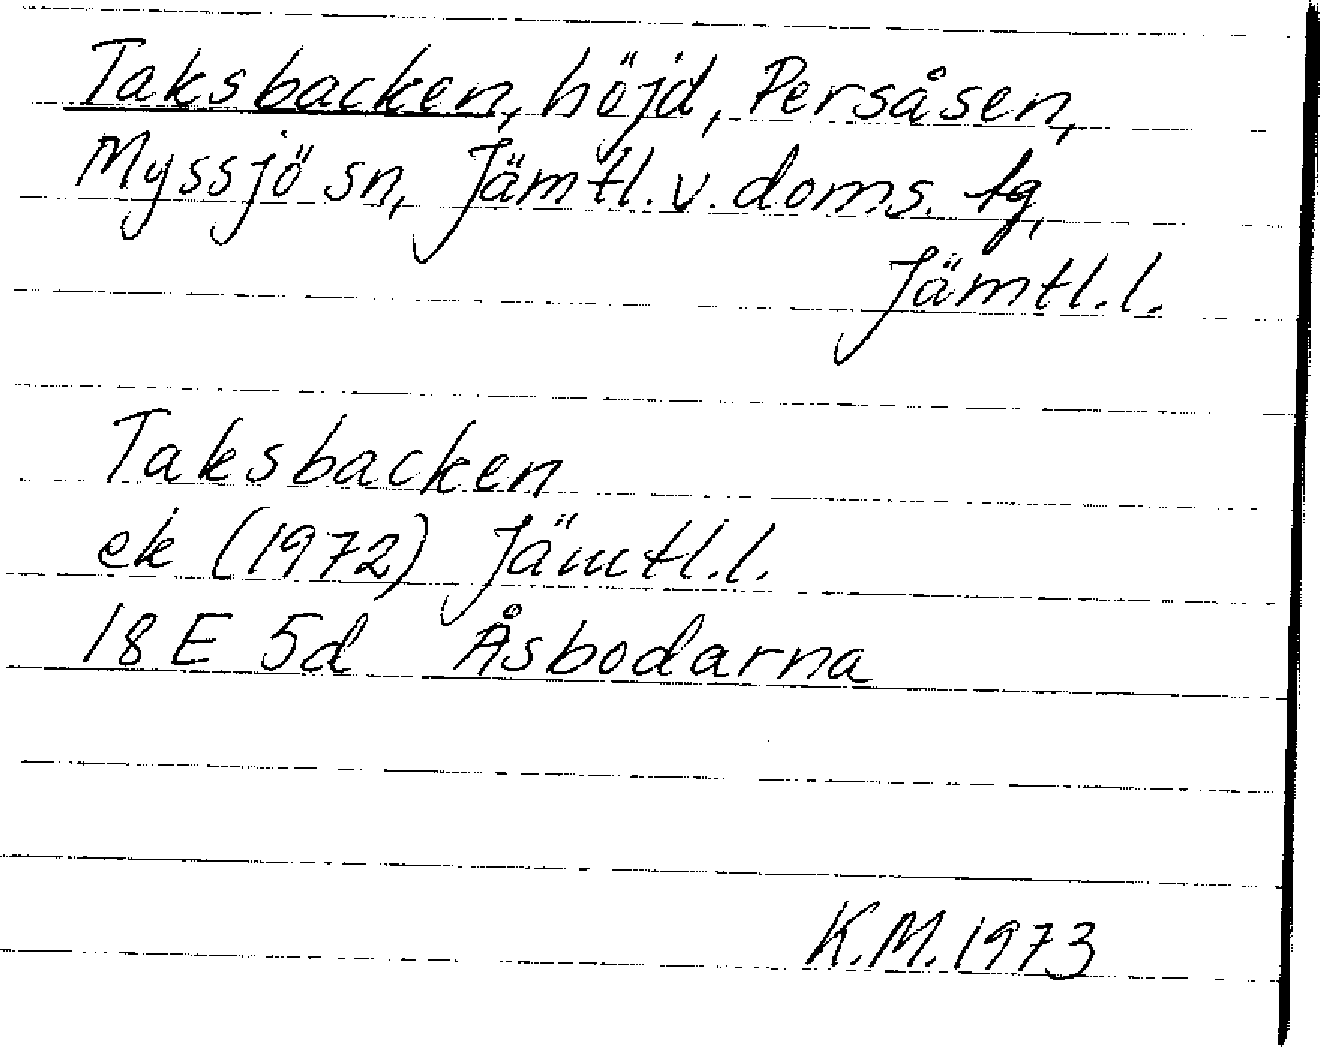 Taksbacken, höjd, Persåsen,
Myssjö sn, Jämtl. v. doms. tg,
Jämtl. l.
Taksbacken
ek (1972) Jämtl. l.
18 E 5d Åsbodarna
K. M. 1973